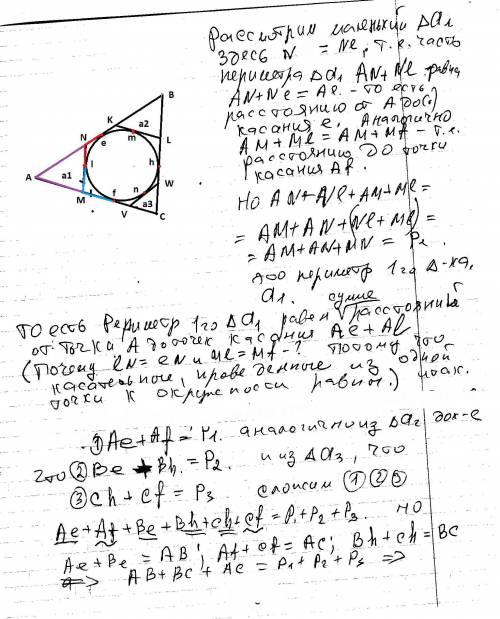 Рассмотрим маленький Δa1
здесь N = Ne, т.е. часть
периметра Δa1 AN+Nl равна
AN+Ne = Ae - то есть
расстоянию от A до
касания e. Аналогично
AM+Ml = AM+Mf - т.е.
расстоянию до точки
касания Af.
Но AN+Nl+AM+Ml =
= AM+AN+(Nl+Ml) =
= AM+AN+MN = P1.
это периметр 1го Δ-ка,
a1. сумме
то есть Периметр 1го Δa1 равен расстояний
от точки A до точек касания Ae+Af
(Почему lN = eN и Ml = Mf-? Потому что
касательные, проведенные из одной
точки к окружности равны.)
① Ae+Af = P1. аналогично из Δa2
что ② Be + Bh = P2. и из Δa3, что
③ Ch + Cf = P3 сложим ① ② ③
Ae+Af+Be+Bh+Ch+Cf = P1+P2+P3. но
Ae+Be = AB; Af+Cf = AC; Bh+Ch = BC
=> AB+BC+AC = P1+P2+P3 =>
B
K
a2
m
N
e
L
A
a1
l
h
M
f
n
W
V
a3
C